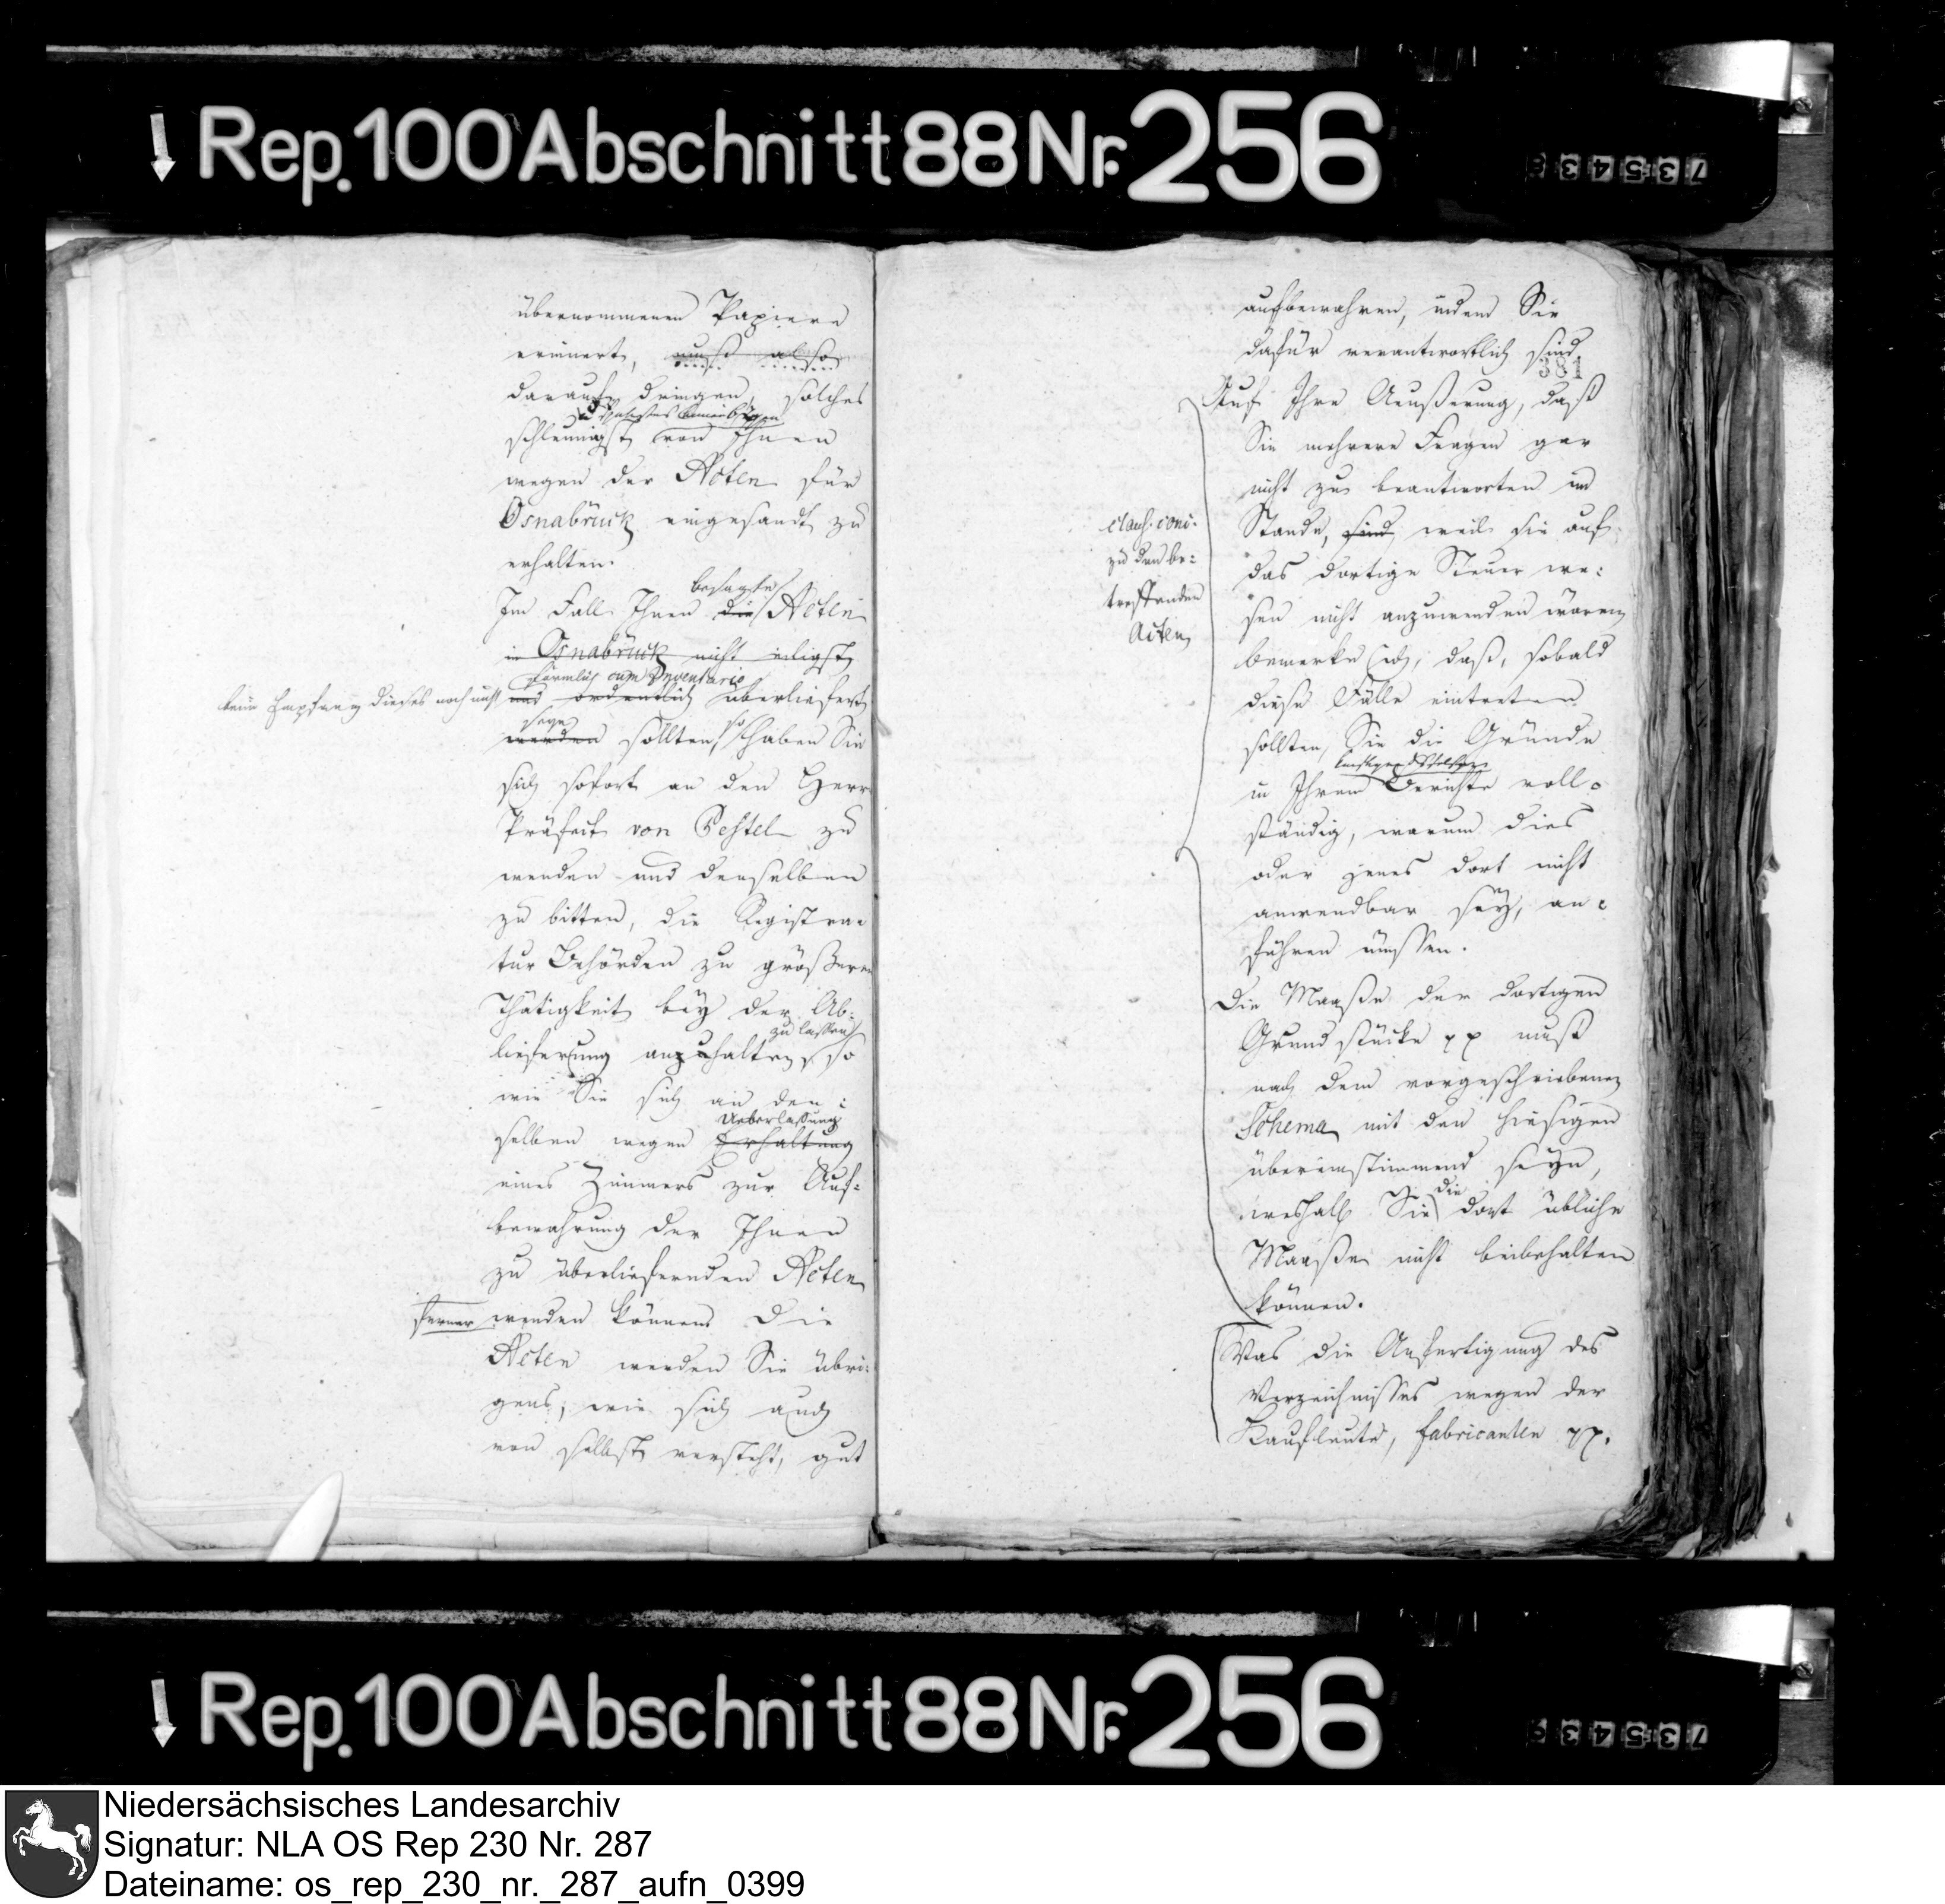 Rep. 100 Abschnitt 88 Nr. 256
735438
übernommenen Papiere
erinnert, muß also
darauf dringen, solches
schleunigst von Ihnen
wegen der Acten für
Osnabrück eingesandt zu
erhalten.
besagte
Im Fall Ihnen die Acten
in Osnabrück nicht eiligst
förmlich cum Inventario
beim Empfang dieses noch nicht und ordentlich überliefert
seyn so
werden sollten, haben Sie
sich sofort an den Herrn
Präfect von Pestel zu
wenden und denselben
zu bitten, die Registra-
tur Behörden zu größerer
Thätigkeit bey der Ab-
zu lassen
lieferung anzuhalten, so
wie Sie sich an den-
Ueberlassung
selben wegen Erhaltung
eines Zimmers zur Auf-
bewahrung der Ihnen
zu überliefernden Acten
ferner wenden können. Die
Acten werden Sie übri-
gens, wie sich auch
von selbst versteht, gut
aufbewahren, indem Sie
dafür verantwortlich sind.
381
Auf Ihre Aeußerung, daß
Sie mehrere Fragen gar
nicht zu beantworten im
Stande, sind, weil sie auf
das dortige Steuer we-
sen nicht anzuwenden wären,
bemerke ich, daß, sobald
diese Fälle eintreten
sollten, Sie die Gründe
in Ihrem Berichte voll-
ständig, warum dies
oder jenes dort nicht
anwendbar sey, an-
führen müssen.
zu den be-
treffenden
Acten
Die Maaße der dortigen
Grundstücke pp muß
nach dem vorgeschriebenen
Schema mit den hiesigen
übereinstimmend seyn,
die
weshalb Sie dort übliche
Maaße nicht beibehalten
können.
Was die Anfertigung des
Verzeichnisses wegen der
Kaufleute, Fabricanten pp.
Rep. 100 Abschnitt 88 Nr. 256
735439
Niedersächsisches Landesarchiv
Signatur: NLA OS Rep 230 Nr. 287
Dateiname: os_rep_230_nr._287_aufn_0399